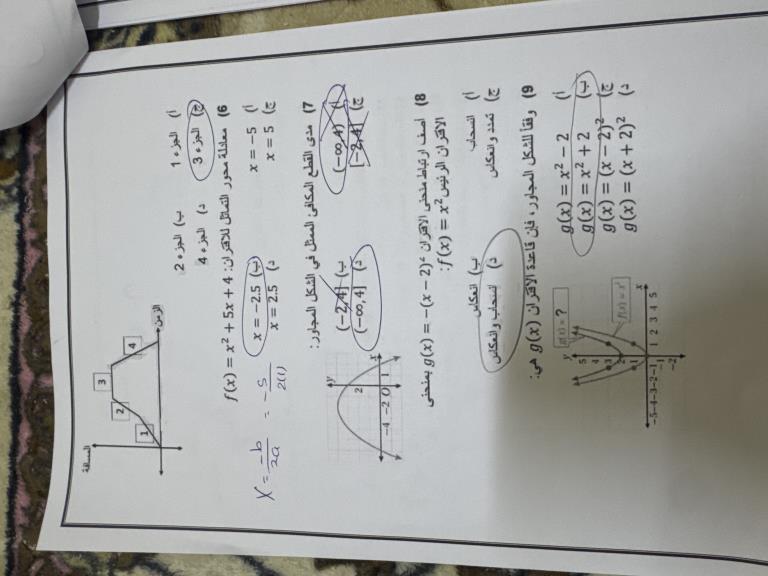 المسافة
1
2
3
4
الزمن
أ) الجزء 1
ب) الجزء 2
ج) الجزء 3
د) الجزء 4
6) معادلة محور التماثل للاقتران: f(x) = x² + 5x + 4
أ) x = −5
ب) x = −2.5
ج) x = 5
د) x = 2.5
X = −b/2a = −5/2(1)
7) مدى القطع المكافئ الممثل في الشكل المجاور:
أ) (−∞, 4)
ب) (−2, 4]
ج) [−2, 4]
د) (−∞, 4]
y
2
−4 −2 O 1 x
8) أصف ارتباط منحنى الاقتران g(x) = −(x − 2)² بمنحنى
الاقتران الرئيس f(x) = x²:
أ) انسحاب
ب) انعكاس
ج) تمدد وانعكاس
د) انسحاب وانعكاس
9) وفقاً للشكل المجاور، فإن قاعدة الاقتران g(x) هي:
أ) g(x) = x² − 2
ب) g(x) = x² + 2
ج) g(x) = (x − 2)²
د) g(x) = (x + 2)²
g(x) = ?
f(x) = x²
y
5
4
3
2
1
−5−4−3−2−1 1 2 3 4 5 x
−1
−2